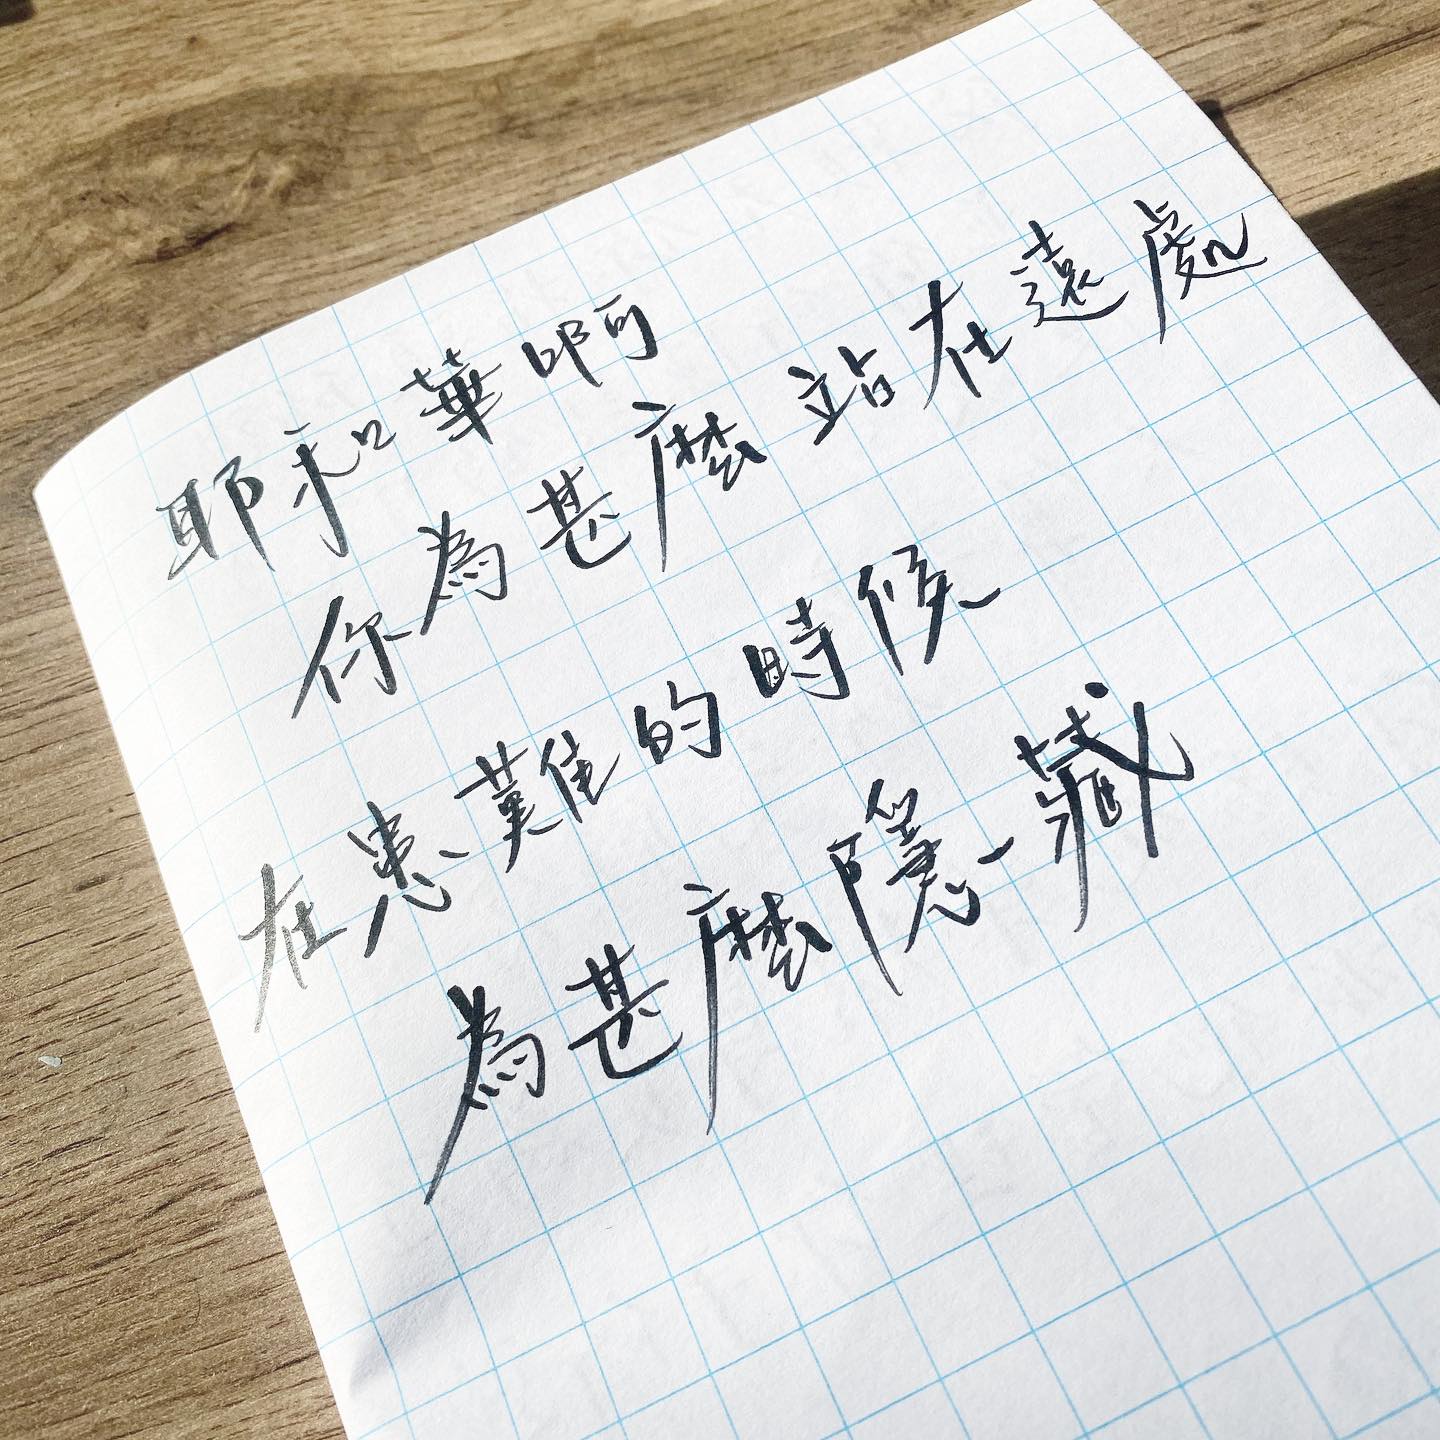 耶和華啊
你為甚麼站在遠處
在患難的時候
為甚麼隱藏